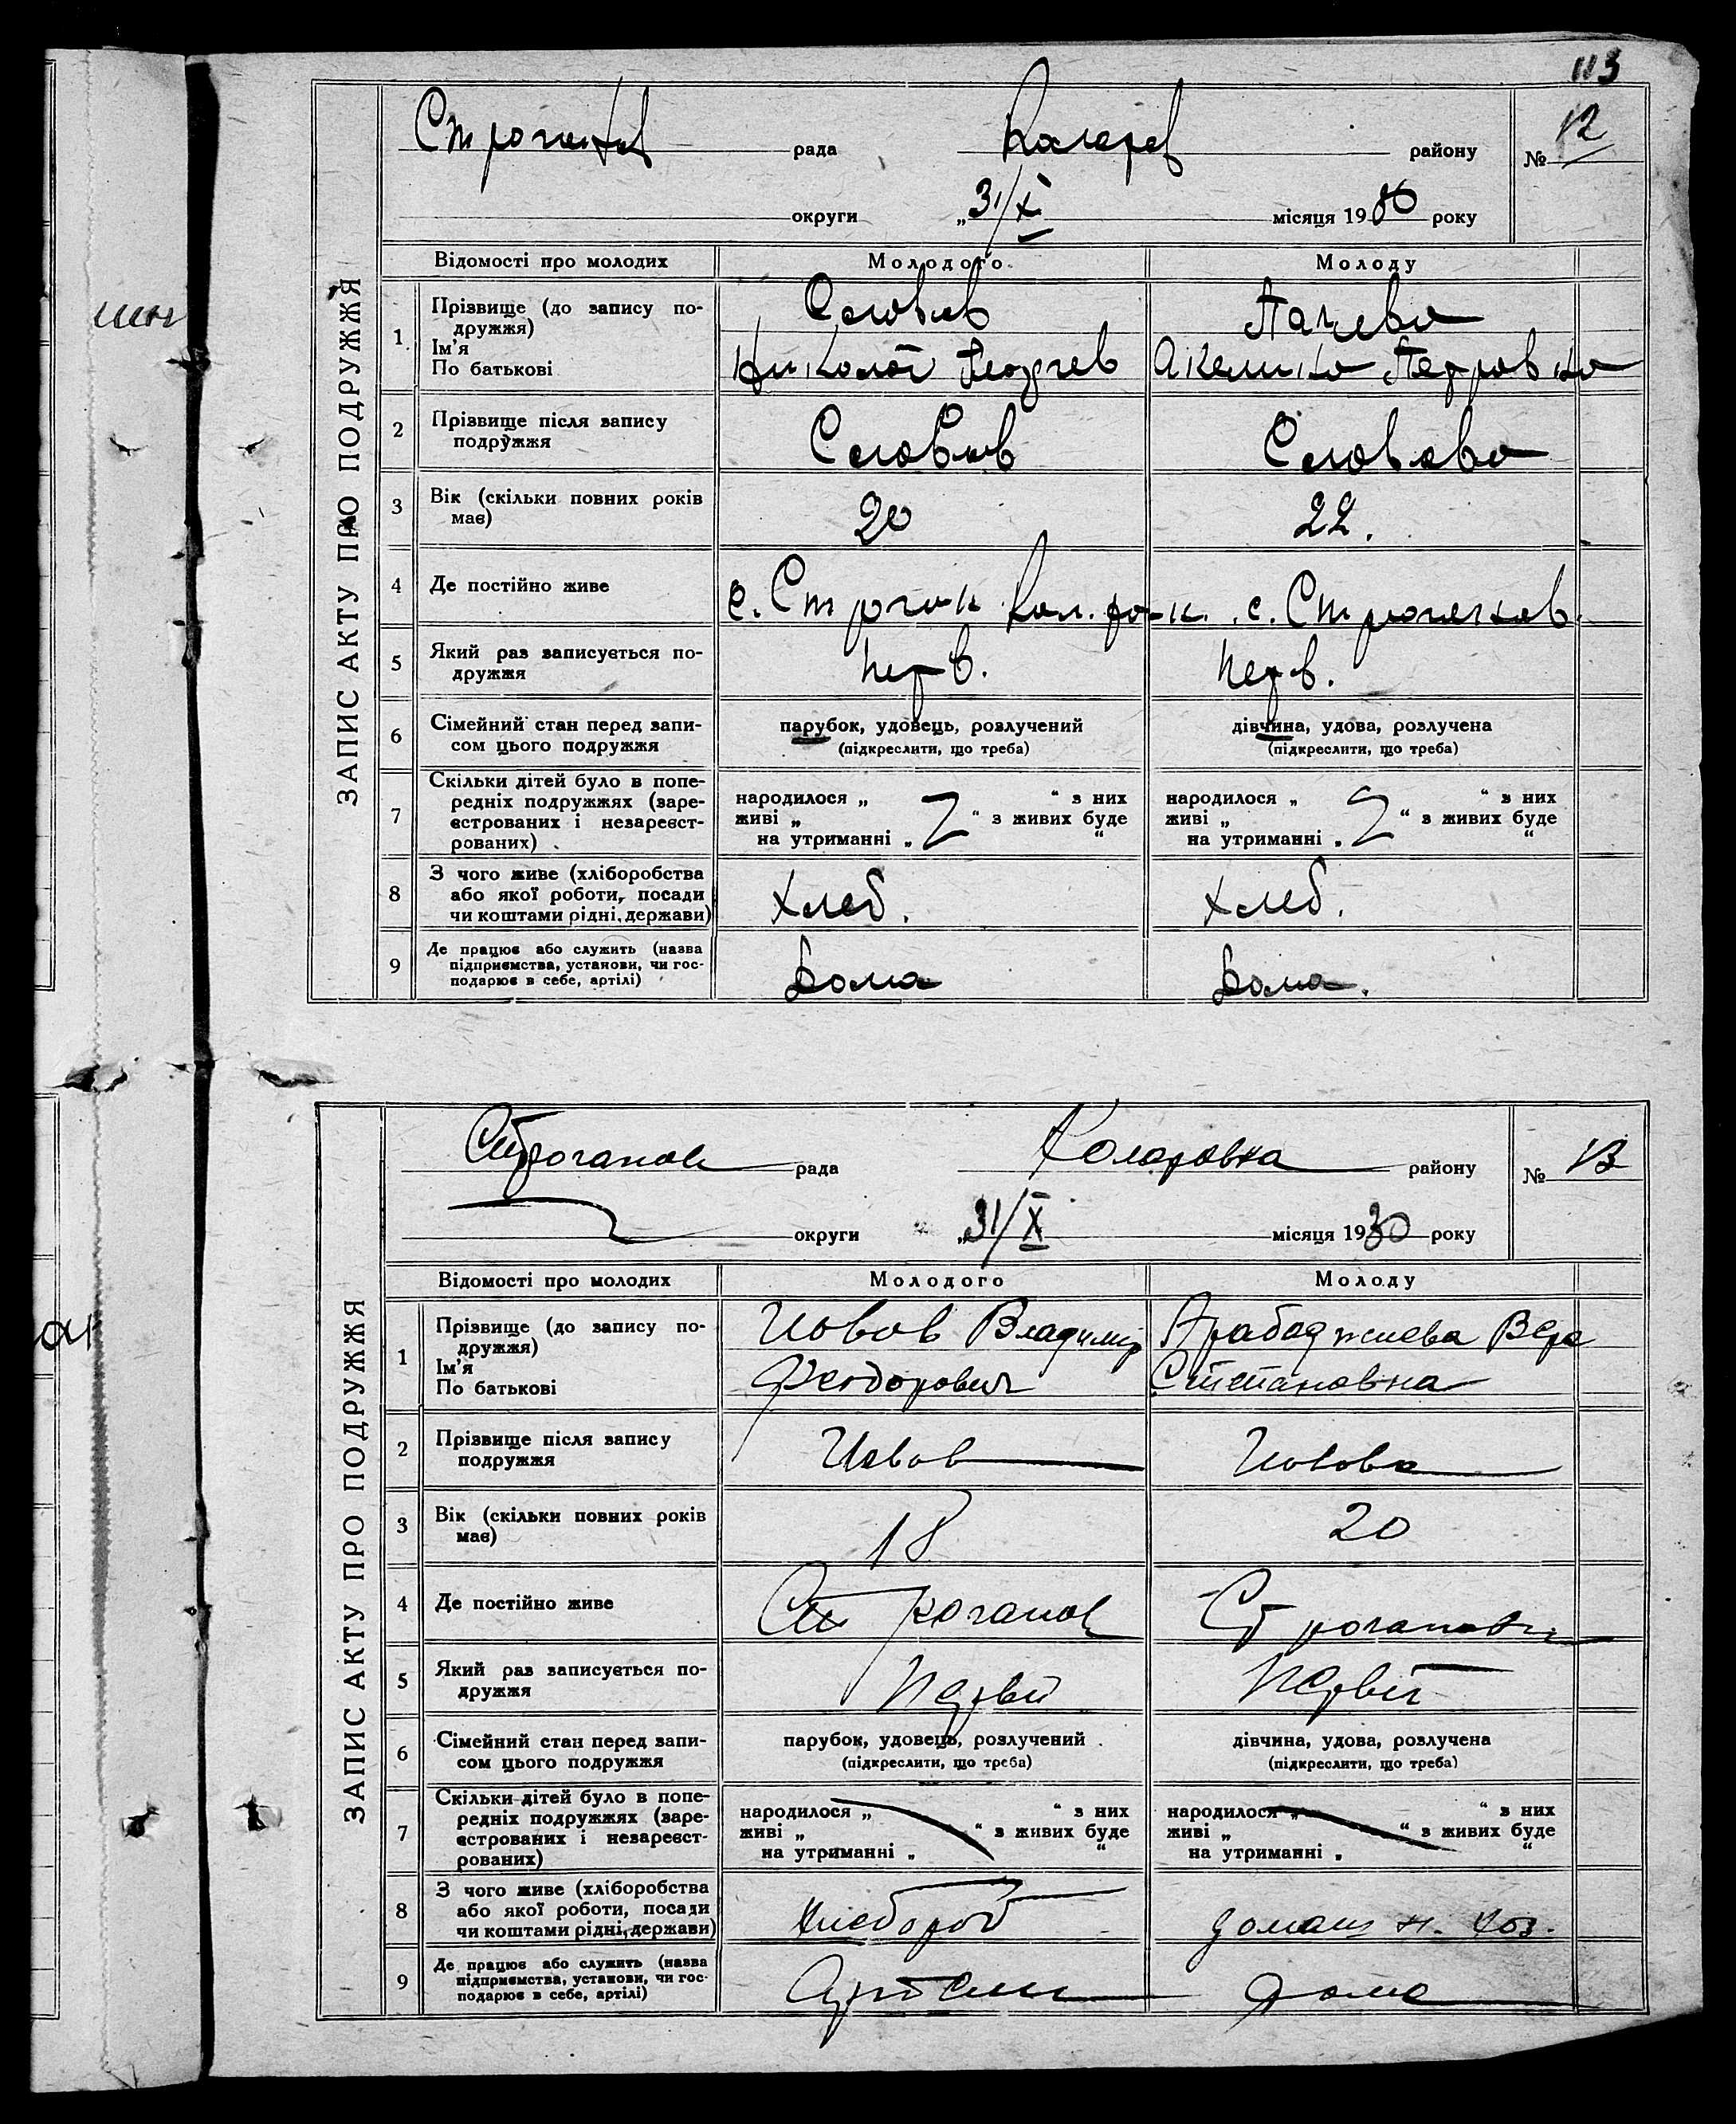 113
ЗАПИС АКТУ ПРО ПОДРУЖЖЯ
рада
району
№ 12
округи „31/X місяця 1930 року
Відомості про молодих Молодого Молоду
1 Прізвище (до запису подружжя)
Ім'я
По батькові
Соловьев
Пачева
Николай Георгиев
Петровна
2 Прізвище після запису
подружжя
Соловьев
Соловьева
3 Вік (скільки повних років
має)
20 22.
4 Де постійно живе
5 Який раз записується по-
дружжя
перв. перв.
6 Сімейний стан перед запи-
сом цього подружжя
парубок, удовець, розлучений
(підкреслити, що треба)
дівчина, удова, розлучена
(підкреслити, що треба)
7 Скільки дітей було в попе-
редніх подружжях (заре-
єстрованих і незареєст-
рованих)
народилося „ “ з них
живі „ “ з живих буде
на утриманні „ “
народилося „ “ з них
живі „ “ з живих буде
на утриманні „ “
8 З чого живе (хліборобства
або якої роботи, посади
чи коштами рідні, держави)
хлеб. хлеб.
9 Де працює або служить (назва
підприємства, установи, чи гос-
подарює в себе, артілі)
Дома Дома.
ЗАПИС АКТУ ПРО ПОДРУЖЖЯ
Строганов рада
Коларовка району
№ 13
округи „31/X місяця 1930 року
Відомості про молодих Молодого Молоду
1 Прізвище (до запису по-
дружжя)
Ім'я
По батькові
Иовов Владимір
Феодорович
Арабаджиева Вера
Степановна
2 Прізвище після запису
подружжя
Иовов Иовова
3 Вік (скільки повних років
має)
18 20
4 Де постійно живе
Строганов
5 Який раз записується по-
дружжя
Первый
6 Сімейний стан перед запи-
сом цього подружжя
парубок, удовець, розлучений
(підкреслити, що треба)
дівчина, удова, розлучена
(підкреслити, що треба)
7 Скільки дітей було в попе-
редніх подружжях (заре-
єстрованих і незареєст-
рованих)
народилося „ “ з них
живі „ “ з живих буде
на утриманні „ “
народилося „ “ з них
живі „ “ з живих буде
на утриманні „ “
8 З чого живе (хліборобства
або якої роботи, посади
чи коштами рідні, держави)
Хлебороб домашн. хоз.
9 Де працює або служить (назва
підприємства, установи, чи гос-
подарює в себе, артілі)
Артели дома